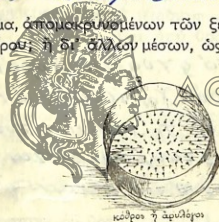 μα, ἀπομακρυνομένων τῶν ξέ
ρου, ἢ δι᾿ ἄλλων μέσων, ὡς
κόθρος ἢ ἀρυλόγος